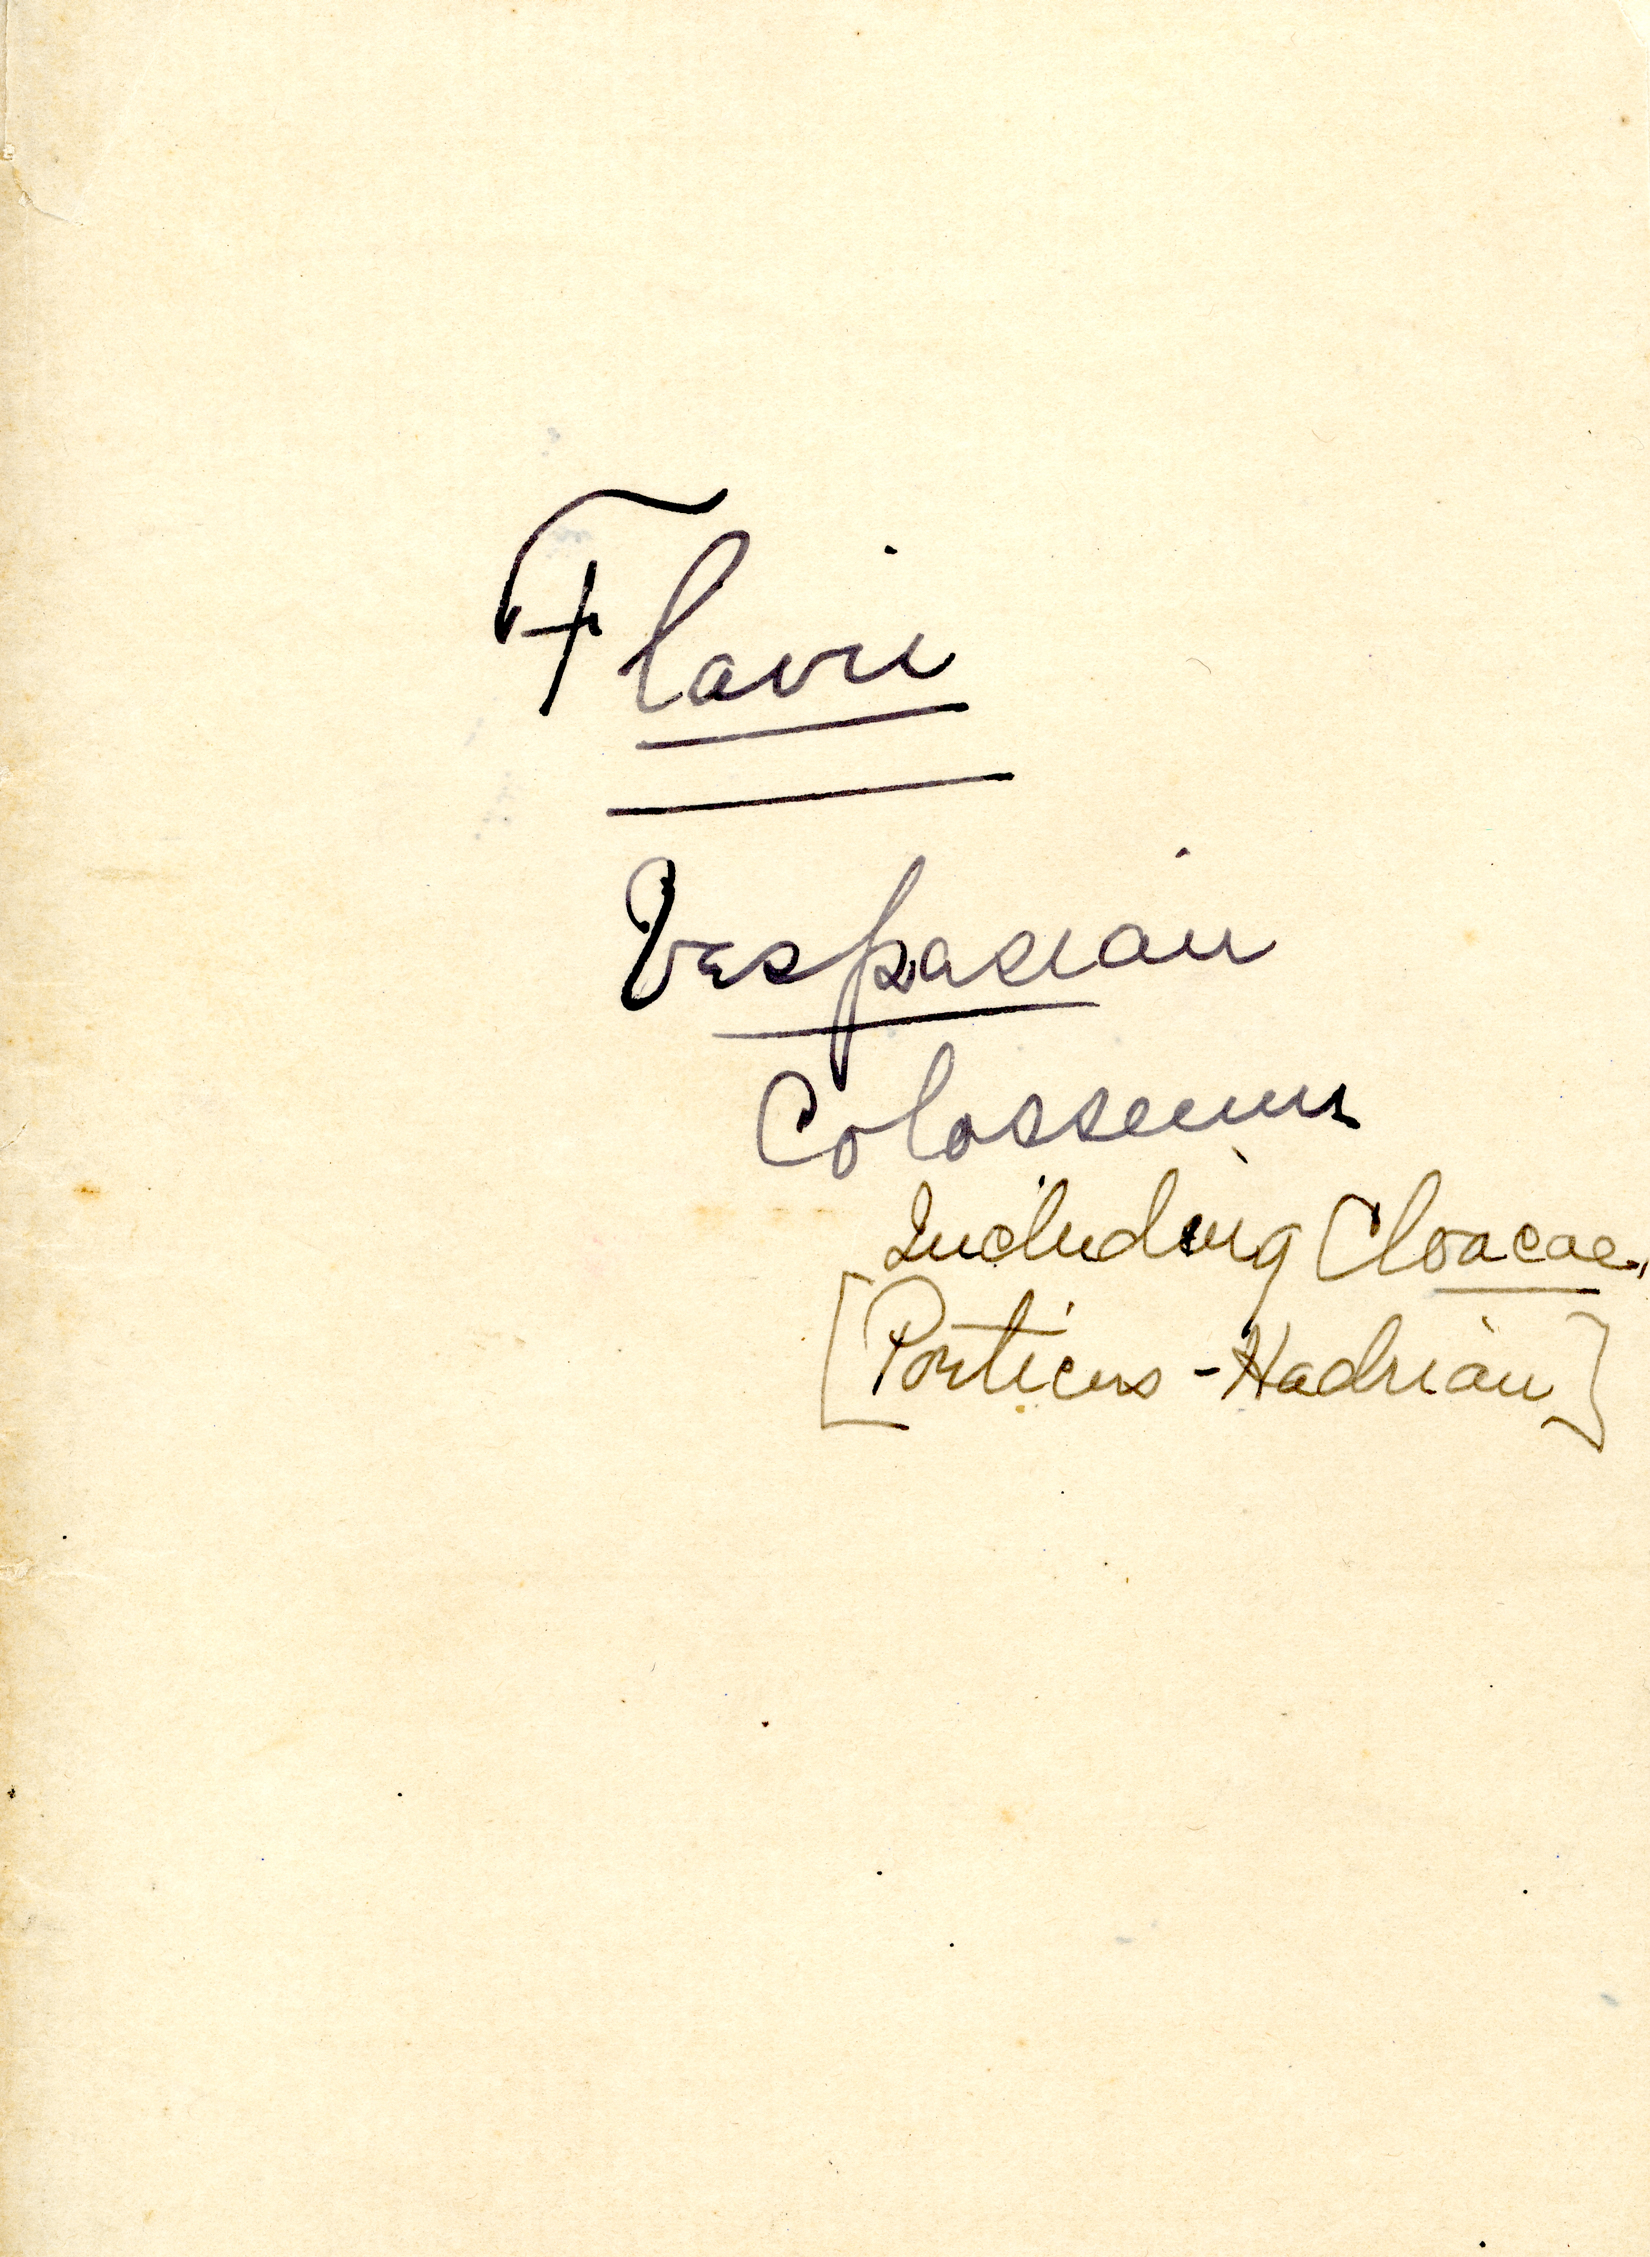 Flavii
Vespasian
Colosseum
Including Cloacae,
[Porticus - Hadrian]